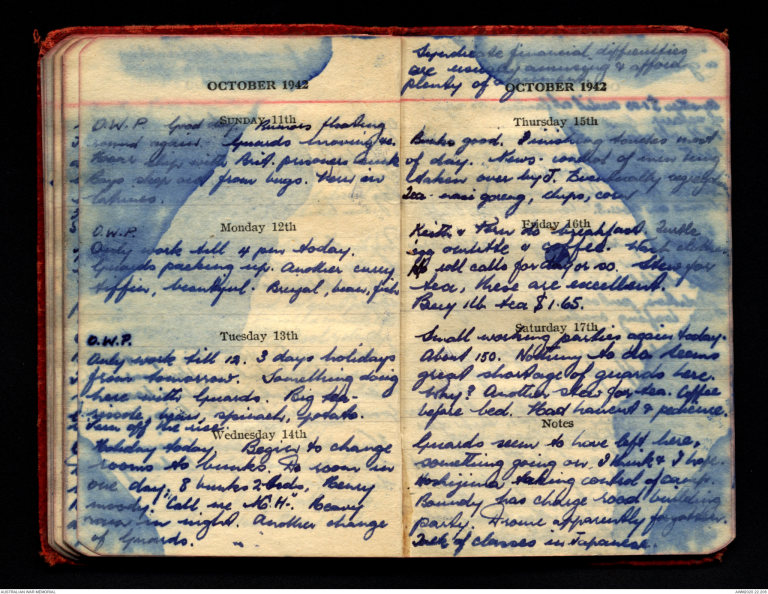 OCTOBER 1942
SUNDAY 11th
O.W.P. Good days. Rumours floating
round again. Guards moving so.
Hear sleep with Brit. prisoners
Boys sleep out from bugs. Now in
Monday 12th
O.W.P.
Only work till 4 pm today.
Guards packing up. Another curry
tiffin, beautiful. Brinjal, bean, fish
Tuesday 13th
O.W.P.
Only work till 12. 3 days holidays
from tomorrow. Something doing
here with Guards. Big tea-
bean, spinach, potato.
Turn off the rice.
Wednesday 14th
Holiday today. Begin to change
rooms to bunks. Do room in
one day, 8 bunks 2 beds, Henry
moody. Call me N.H. Heavy
rain in night. Another change
of Guards.
Syndicate financial difficulties
are very amusing & afford
plenty of
OCTOBER 1942
Thursday 15th
Bunks good. Finishing touches most
of day. News - control of men being
taken over by J.
Tea - nasi goreng, chips, corn
Friday 16th
Keith & Fern do breakfast.
outside & coffee. Wash clothes.
No roll calls for day or so. Stew for
tea, these are excellent.
Buy 1lb tea $1.65.
Saturday 17th
Small working parties again today.
About 150. Nothing to do. Seems
great shortage of guards here.
Why? Another stew for tea. Coffee
before bed. Had haircut & pedicure.
Notes
Guards seem to have left here,
something going on, I think & I hope.
Hoshijima taking control of camp.
Boundy has charge road building
party. Drome apparently forgotten.
Talk of classes in Japanese.
AUSTRALIAN WAR MEMORIAL